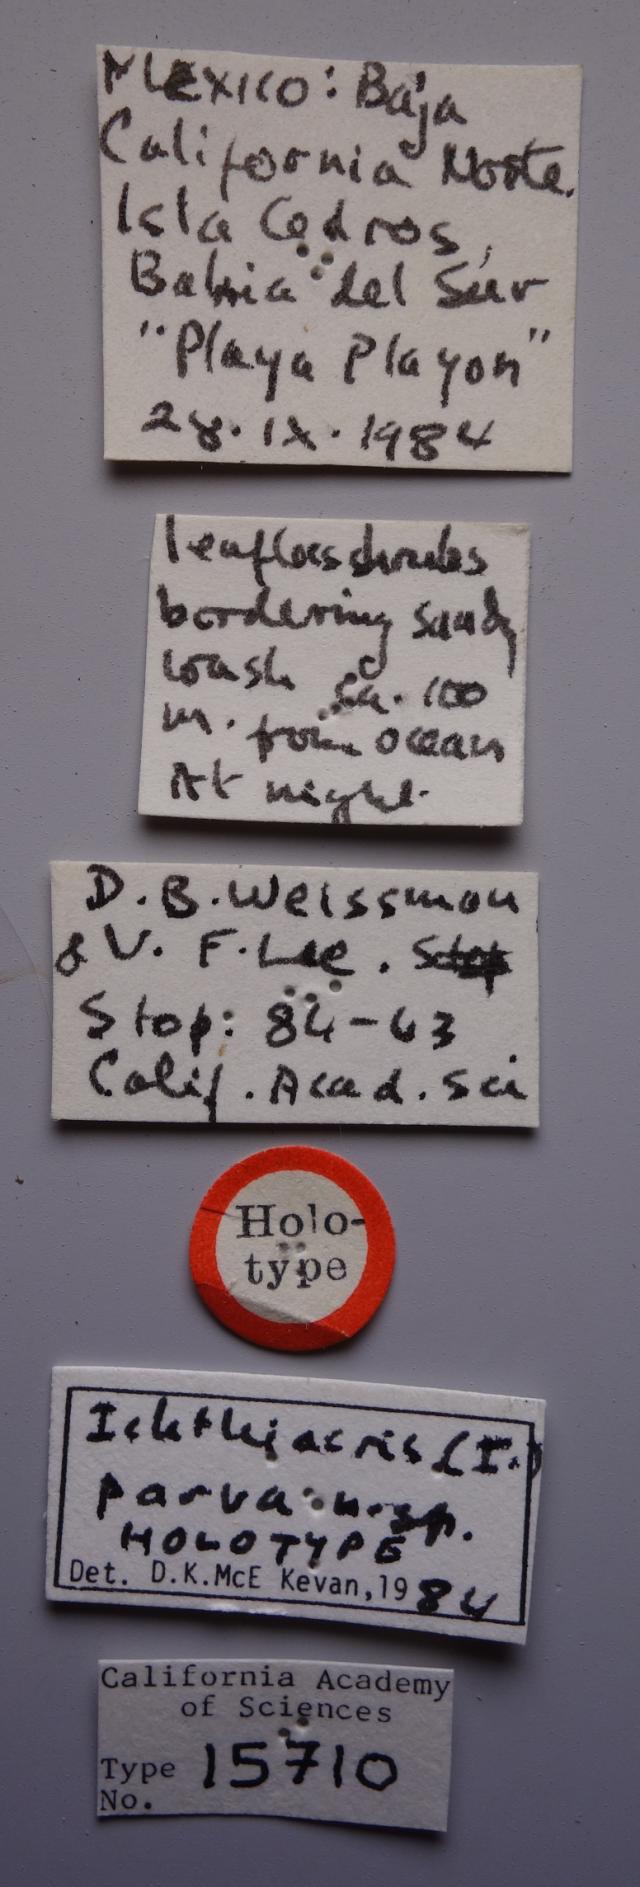 MEXICO: Baja
California Norte.
Isla Cedros,
Bahia del Sur
"Playa Playon"
28.IX.1984
leafless shrubs
bordering sandy
wash ca. 100
m. from ocean
At night.
D.B.Weissman
& V. F. Lee.
Stop: 84-63
Calif. Acad. Sci
Holo-
type
Ichthyacris (I.)
parva n.sp.
HOLOTYPE
Det. D.K.McE Kevan, 1984
California Academy
of Sciences
Type 15710
No.